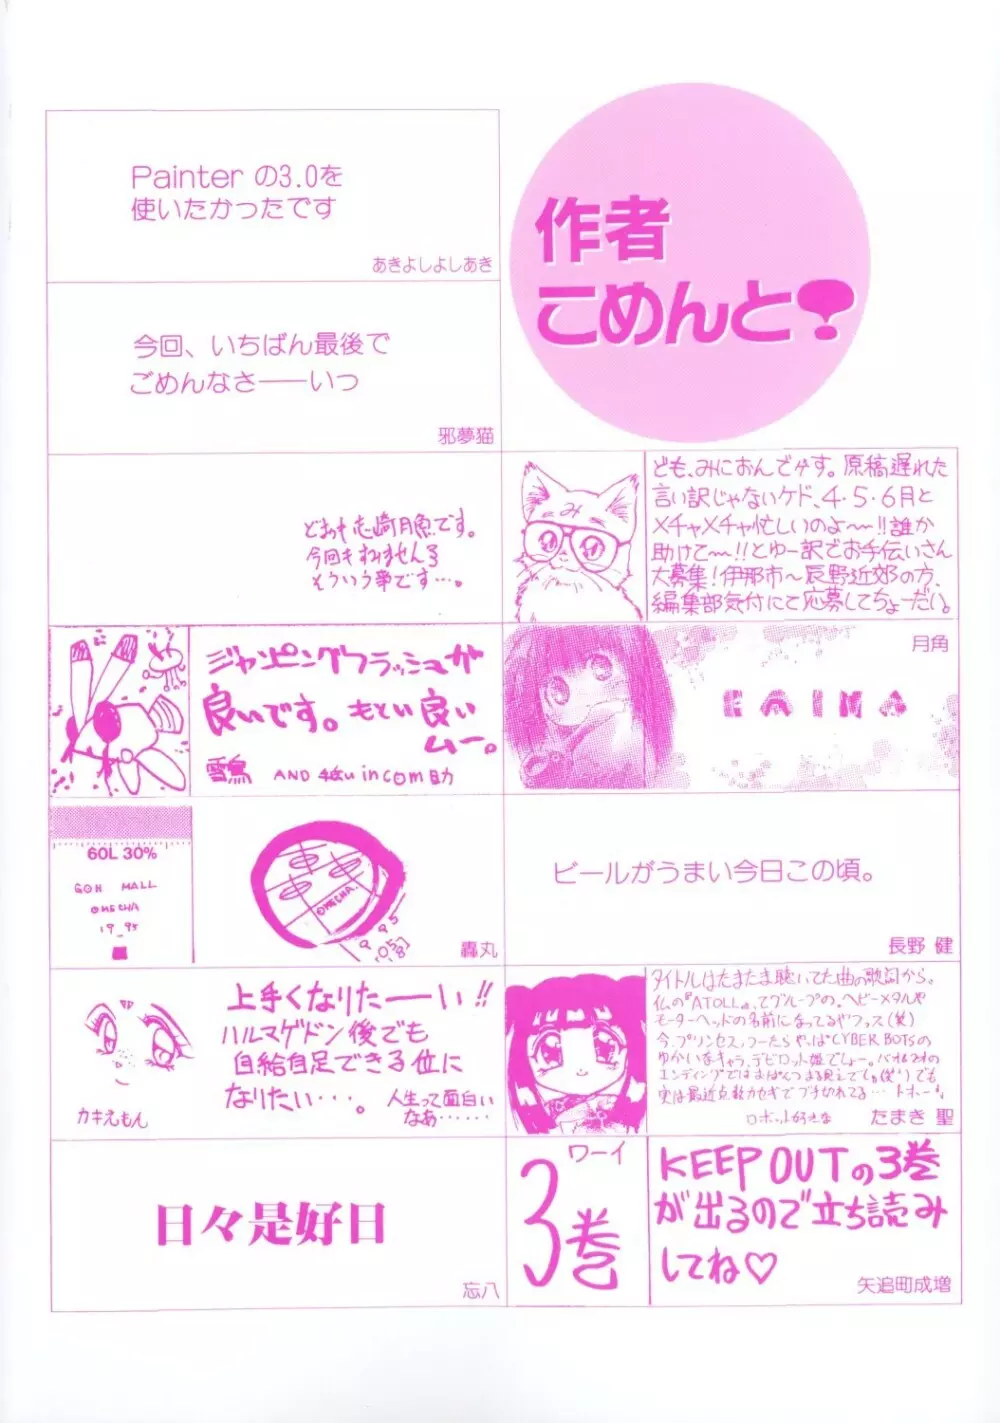 作者
こめんと
Painter の3.0を
使いたかったです
あきよしよしあき
今回、いちばん最後で
ごめんなさ――いっ
邪夢猫
どおも志崎月魚です。
今回もすみませんする
そういう事です…。
ども、みにおんでゲす。原稿遅れた
言い訳じゃないケド、4・5・6月と
メチャメチャ忙しいのよ〜!!誰か
助けて〜!!とゆー訳でお手伝いさん
大募集!伊那市〜辰野近郊の方、
編集部気付にて応募してちょーだい。
み
ジャンピングフラッシュが
良いです。もとい良い
ムー。
雪鳥 AND
incom助
月角
60L 30%
GOH MALL
OMECHA
19_95
OMECHA.
轟丸
ビールがうまい今日この頃。
長野 健
上手くなりたーーい!!
ハルマゲドン後でも
自給自足できる位に
なりたい・・・。
人生って面白い
なあ……
カキえもん
タイトルはたまたま聴いてた曲の歌詞から。
仏の『ATOLL』ってグループの、ヘビーメタルや
モーターヘッドの名前になってるやファス(笑)
今、プリンセスっつーたらやっぱCYBER BOTSの
ゆかいなキャラ、デビロット姫でしょー。
実は最近点数カセギでブチ切れてる…
ロボット好きな
たまき 聖
日々是好日
忘八
ワーイ
3巻
KEEP OUTの3巻
が出るので立ち読み
してね♡
矢追町成増